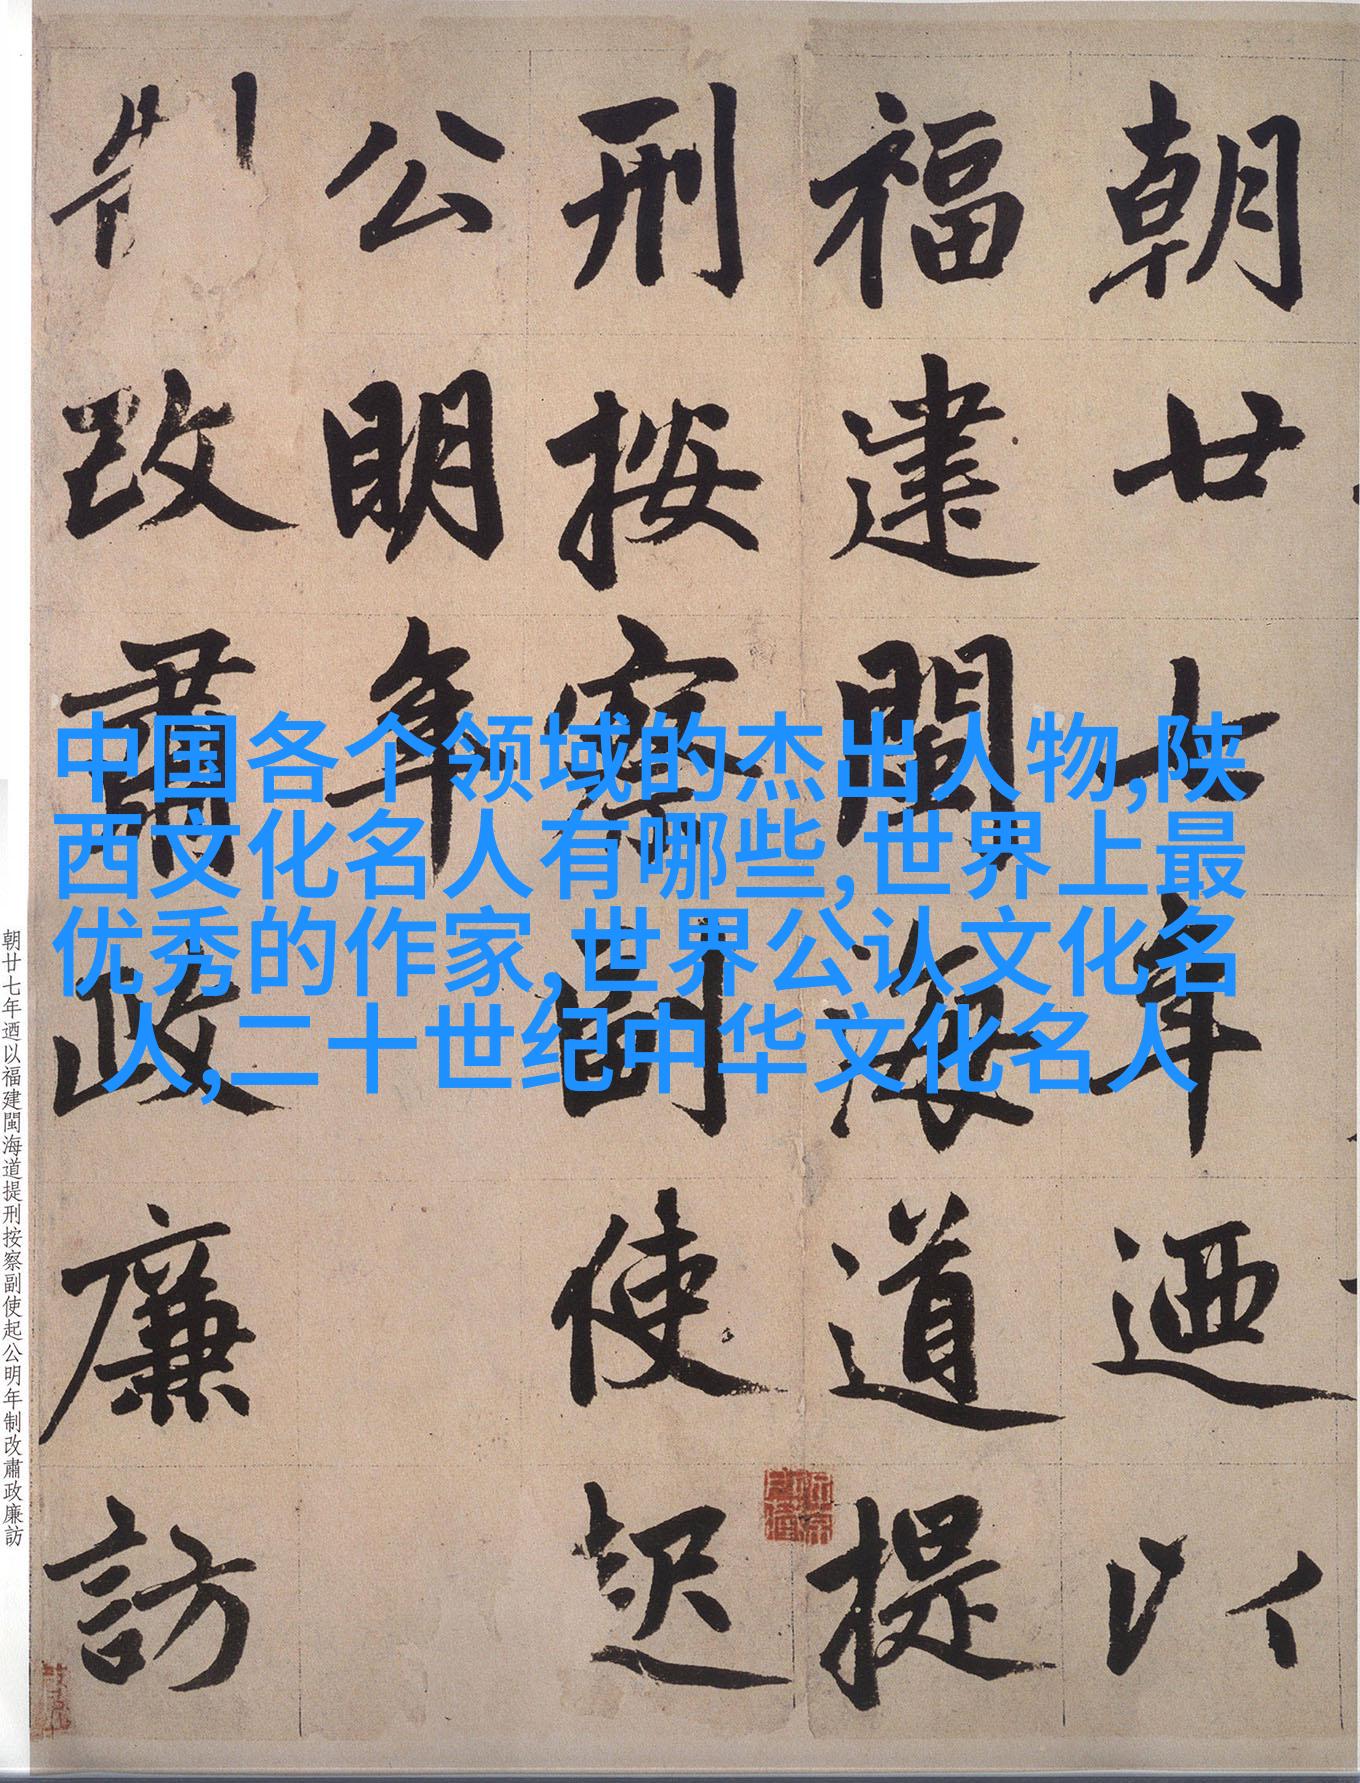 朝廿七年迺以
福建閩海道提
刑按察副使起
公明年
制改肅政廉訪
中国各个领域的杰出人物,陕
西文化名人有哪些,世界上最
优秀的作家,世界公认文化名
人,二十世纪中华文化名人
朝廿七年迺以福建閩海道提刑按察副使起公明年制改肅政廉訪